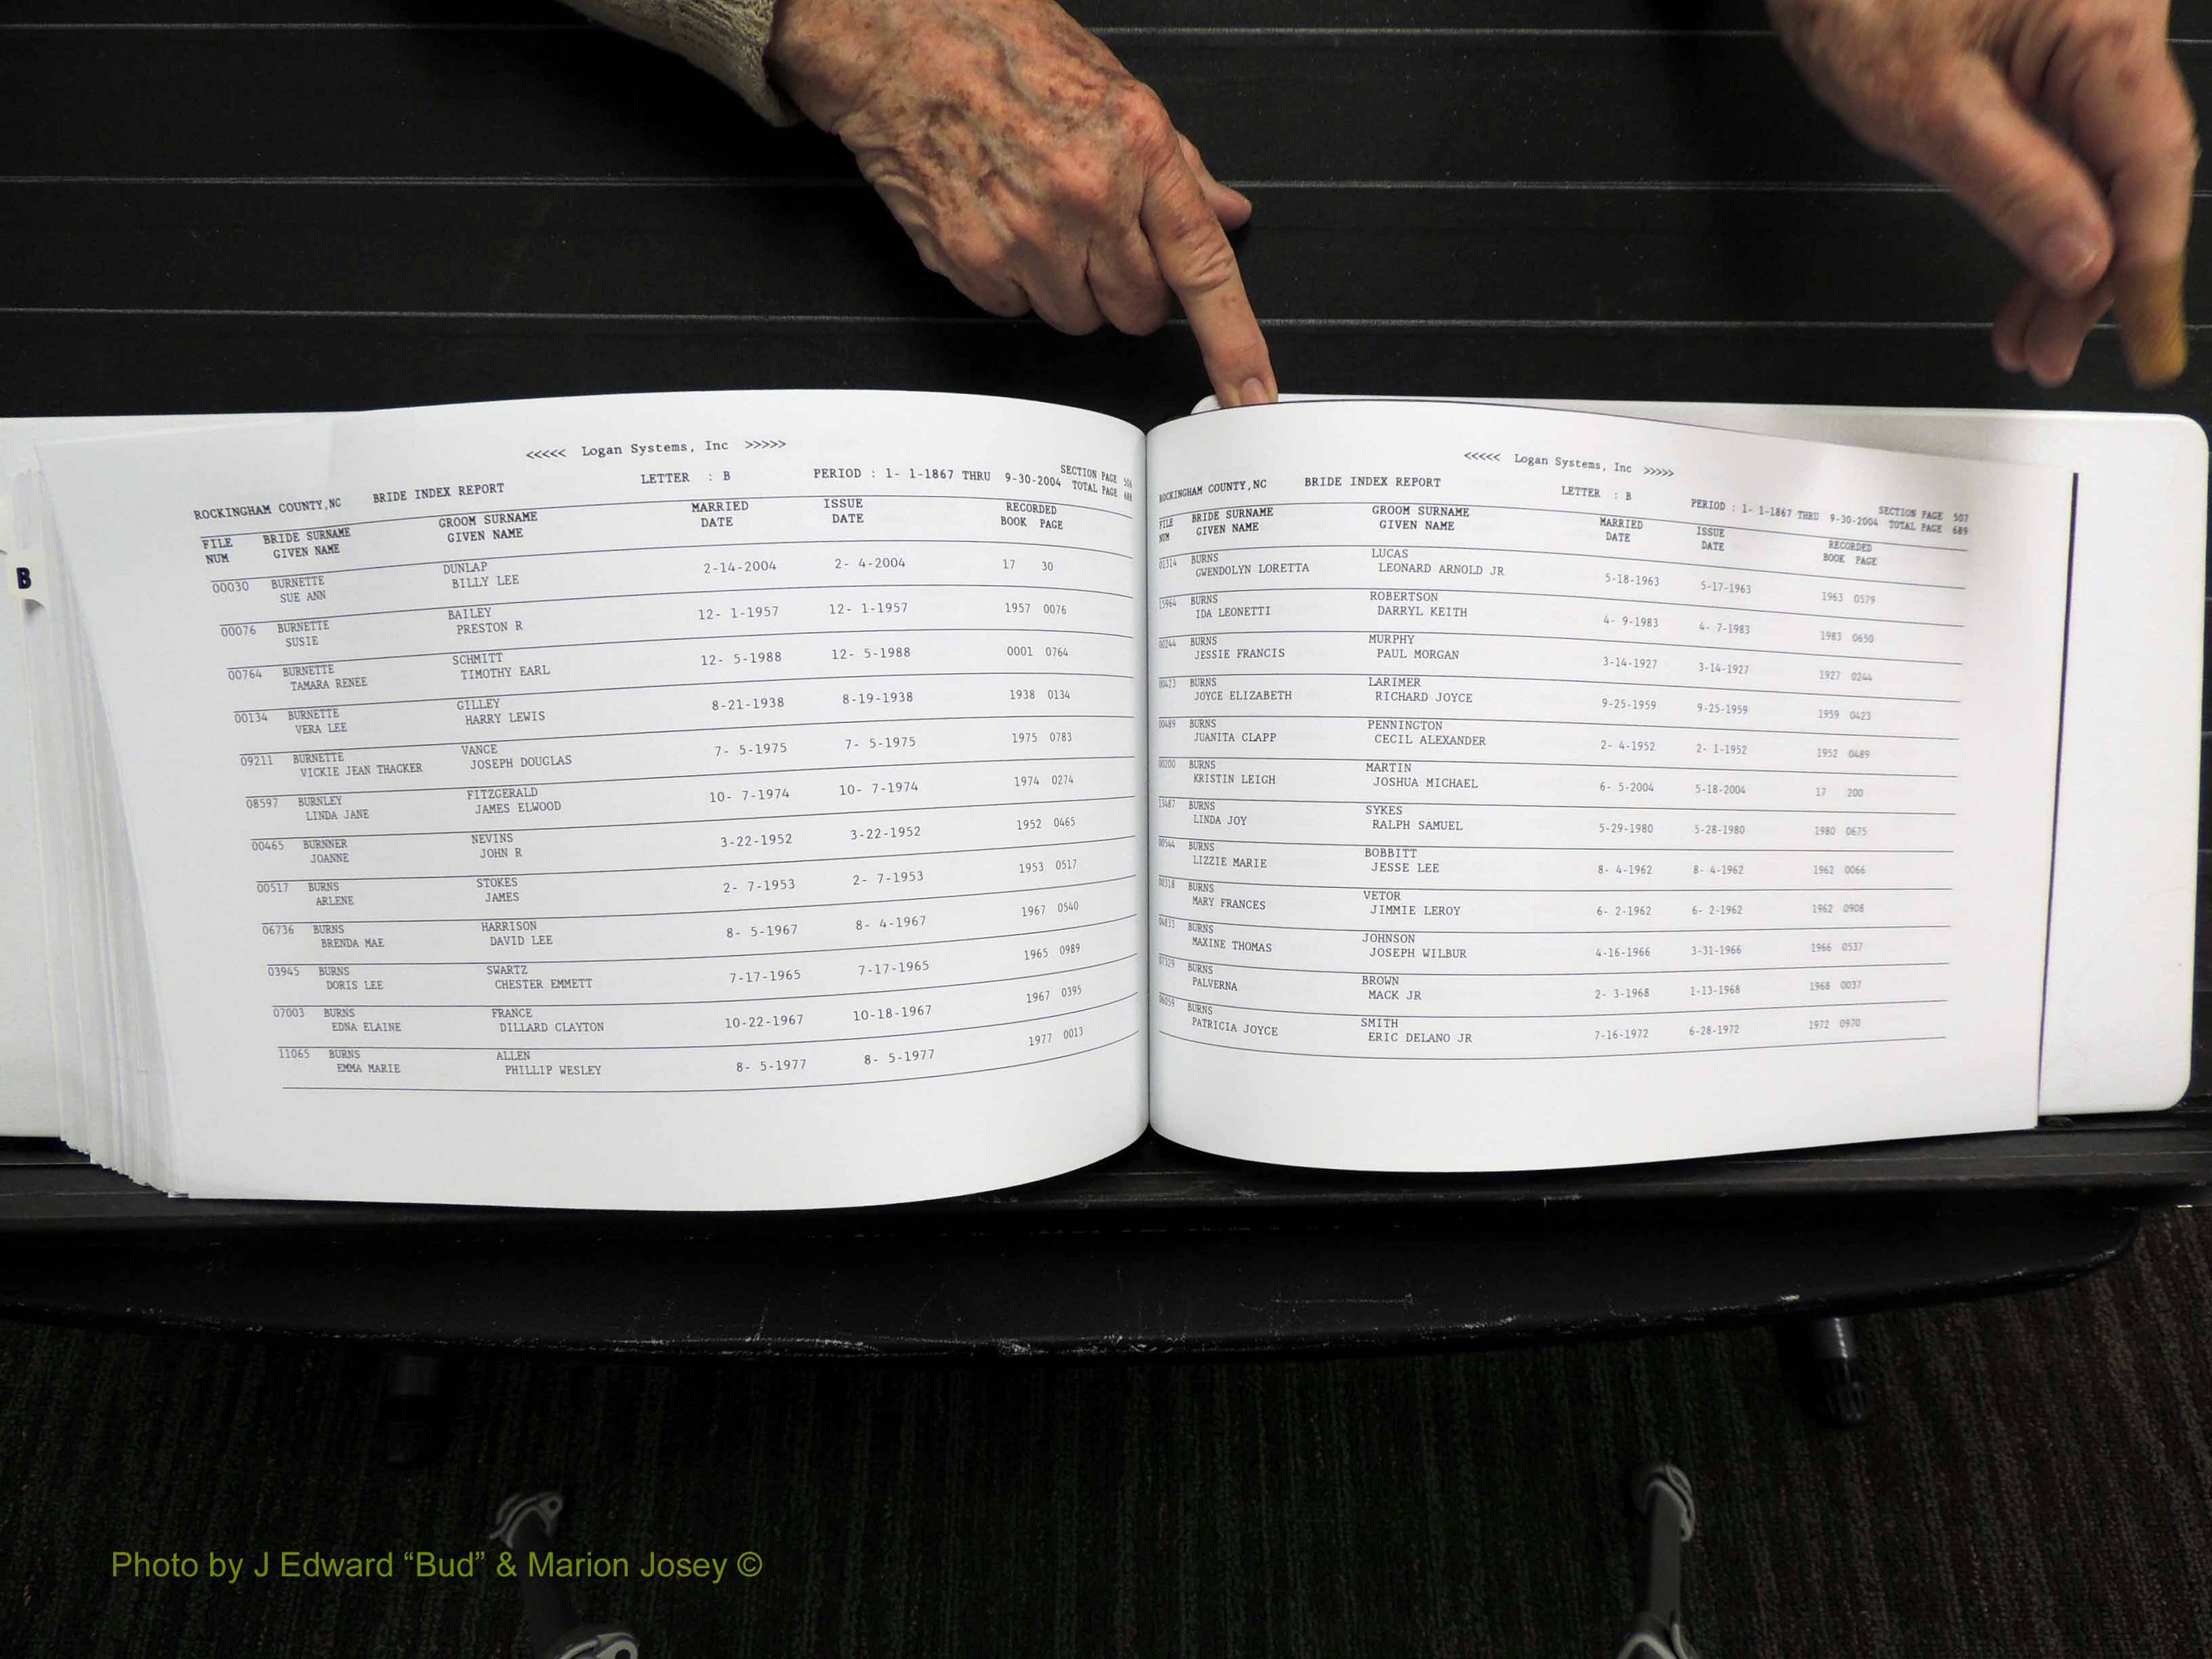 B
<<<<< Logan Systems, Inc >>>>>
ROCKINGHAM COUNTY,NC BRIDE INDEX REPORT LETTER : B PERIOD : 1- 1-1867 THRU 9-30-2004 SECTION PAGE 506
TOTAL PAGE 688
FILE BRIDE SURNAME GROOM SURNAME MARRIED ISSUE RECORDED
NUM GIVEN NAME GIVEN NAME DATE DATE BOOK PAGE
00030 BURNETTE DUNLAP 2-14-2004 2- 4-2004 17 30
SUE ANN BILLY LEE
00076 BURNETTE BAILEY 12- 1-1957 12- 1-1957 1957 0076
SUSIE PRESTON R
00764 BURNETTE SCHMITT 12- 5-1988 12- 5-1988 0001 0764
TAMARA RENEE TIMOTHY EARL
00134 BURNETTE GILLEY 8-21-1938 8-19-1938 1938 0134
VERA LEE HARRY LEWIS
09211 BURNETTE VANCE 7- 5-1975 7- 5-1975 1975 0783
VICKIE JEAN THACKER JOSEPH DOUGLAS
08597 BURNLEY FITZGERALD 10- 7-1974 10- 7-1974 1974 0274
LINDA JANE JAMES ELWOOD
00465 BURNNER NEVINS 3-22-1952 3-22-1952 1952 0465
JOANNE JOHN R
00517 BURNS STOKES 2- 7-1953 2- 7-1953 1953 0517
ARLENE JAMES
06736 BURNS HARRISON 8- 5-1967 8- 4-1967 1967 0540
BRENDA MAE DAVID LEE
03945 BURNS SWARTZ 7-17-1965 7-17-1965 1965 0989
DORIS LEE CHESTER EMMETT
07003 BURNS FRANCE 10-22-1967 10-18-1967 1967 0395
EDNA ELAINE DILLARD CLAYTON
11065 BURNS ALLEN 8- 5-1977 8- 5-1977 1977 0013
EMMA MARIE PHILLIP WESLEY
<<<<< Logan Systems, Inc >>>>>
ROCKINGHAM COUNTY,NC BRIDE INDEX REPORT LETTER : B PERIOD : 1- 1-1867 THRU 9-30-2004 SECTION PAGE 507
TOTAL PAGE 689
FILE BRIDE SURNAME GROOM SURNAME MARRIED ISSUE RECORDED
NUM GIVEN NAME GIVEN NAME DATE DATE BOOK PAGE
01314 BURNS LUCAS 5-18-1963 5-17-1963 1963 0579
GWENDOLYN LORETTA LEONARD ARNOLD JR
15964 BURNS ROBERTSON 4- 9-1983 4- 7-1983 1983 0650
IDA LEONETTI DARRYL KEITH
00244 BURNS MURPHY 3-14-1927 3-14-1927 1927 0244
JESSIE FRANCIS PAUL MORGAN
00423 BURNS LARIMER 9-25-1959 9-25-1959 1959 0423
JOYCE ELIZABETH RICHARD JOYCE
00489 BURNS PENNINGTON 2- 4-1952 2- 1-1952 1952 0489
JUANITA CLAPP CECIL ALEXANDER
00200 BURNS MARTIN 6- 5-2004 5-18-2004 17 200
KRISTIN LEIGH JOSHUA MICHAEL
13487 BURNS SYKES 5-29-1980 5-28-1980 1980 0675
LINDA JOY RALPH SAMUEL
00544 BURNS BOBBITT 8- 4-1962 8- 4-1962 1962 0066
LIZZIE MARIE JESSE LEE
00318 BURNS VETOR 6- 2-1962 6- 2-1962 1962 0908
MARY FRANCES JIMMIE LEROY
04833 BURNS JOHNSON 4-16-1966 3-31-1966 1966 0537
MAXINE THOMAS JOSEPH WILBUR
07329 BURNS BROWN 2- 3-1968 1-13-1968 1968 0037
PALVERNA MACK JR
06059 BURNS SMITH 7-16-1972 6-28-1972 1972 0970
PATRICIA JOYCE ERIC DELANO JR
Photo by J Edward “Bud” & Marion Josey ©